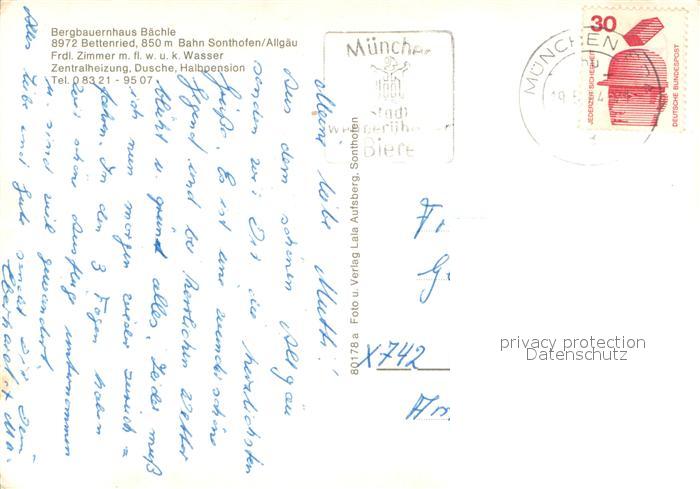 Bergbauernhaus Bächle
8972 Bettenried, 850 m Bahn Sonthofen/Allgäu
Frdl. Zimmer m. fl. w. u. k. Wasser
Zentralheizung, Dusche, Halbpension
Tel. 0 83 21 - 95 07
München
Stadt
weltberühmter
Biere
MÜNCHEN
30
JEDERZEIT SICHERHEIT
DEUTSCHE BUNDESPOST
Meine liebe Mutti!
Aus dem schönen Allgäu
senden wir Dir die herzlichsten
Grüße. Es ist eine wunderschöne
Gegend und bei herrlichem Wetter
blüht u. grünt alles. Leider muß
ich nun morgen wieder zurück=
fahren. In den 3 Tagen haben
wir schöne Ausflüge unternommen
u. sind viel gewandert.
Alles Liebe und Gute sendet Dir Dein
Eberhard +
80178a Foto u. Verlag Lala Aufsberg, Sonthofen
X742
privacy protection
Datenschutz